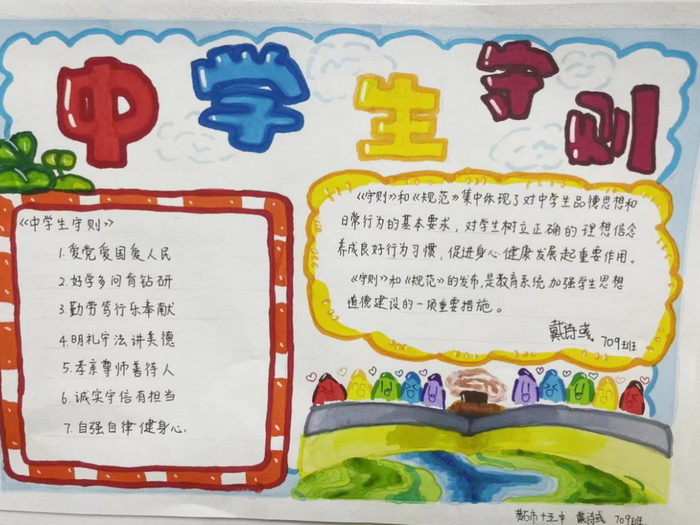 中学生守则
《中学生守则》
1.爱党爱国爱人民
2.好学多问肯钻研
3.勤劳笃行乐奉献
4.明礼守法讲美德
5.孝亲尊师善待人
6.诚实守信有担当
7.自强自律健身心
《守则》和《规范》集中体现了对中学生品德思想和
日常行为的基本要求，对学生树立正确的理想信念
养成良好行为习惯，促进身心健康发展起重要作用。
《守则》和《规范》的发布，是教育系统加强学生思想
道德建设的一项重要措施。
戴诗彧 709班
黄石市十五中 戴诗彧 709班